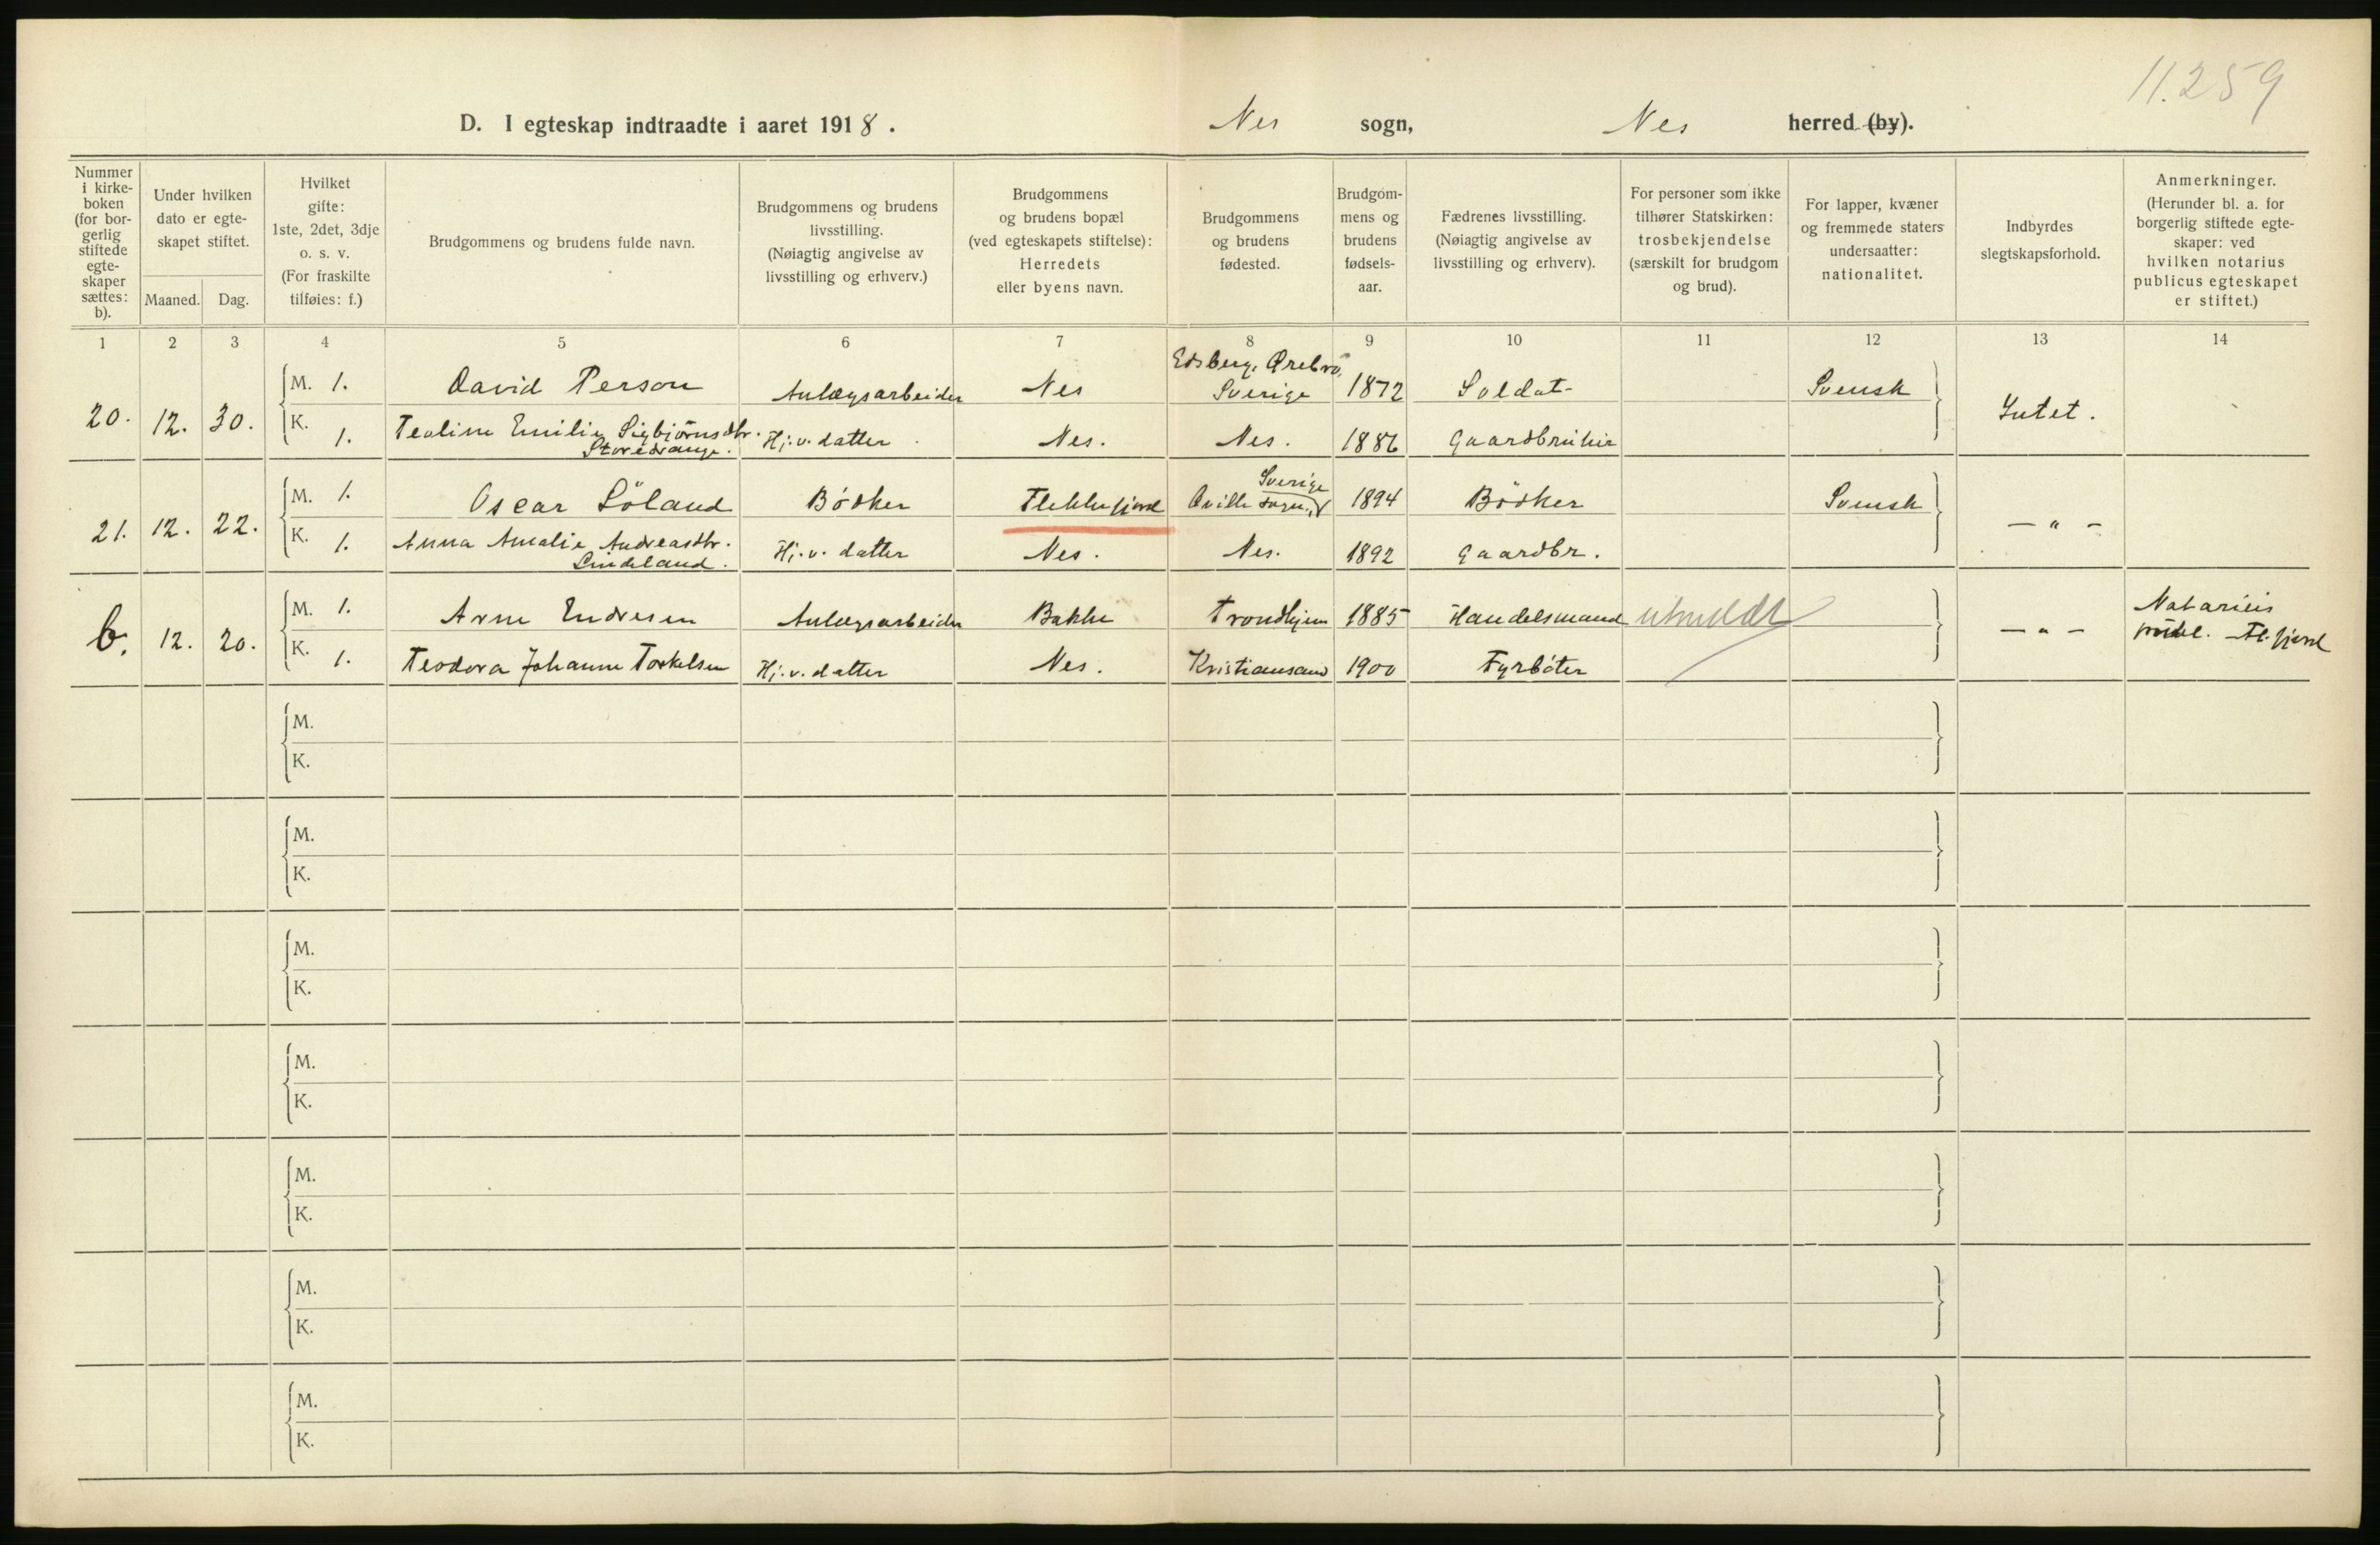 11.259
D. I egteskap indtraadte i aaret 1918. Nes sogn, Nes herred (by).
Nummer i kirke-boken (for bor-gerlig stiftede egte-skaper sættes: b).
Under hvilken dato er egte-skapet stiftet.
Maaned. Dag.
Hvilket gifte: 1ste, 2det, 3dje o. s. v. (For fraskilte tilføies: f.)
Brudgommens og brudens fulde navn.
Brudgommens og brudens livsstilling. (Nøiagtig angivelse av livsstilling og erhverv.)
Brudgommens og brudens bopæl (ved egteskapets stiftelse): Herredets eller byens navn.
Brudgommens og brudens fødested.
Brudgom-mens og brudens fødsels-aar.
Fædrenes livsstilling. (Nøiagtig angivelse av livsstilling og erhverv).
For personer som ikke tilhører Statskirken: trosbekjendelse (særskilt for brudgom og brud).
For lapper, kvæner og fremmede staters undersaatter: nationalitet.
Indbyrdes slegtskapsforhold.
Anmerkninger. (Herunder bl. a. for borgerlig stiftede egte-skaper: ved hvilken notarius publicus egteskapet er stiftet.)
1 2 3 4 5 6 7 8 9 10 11 12 13 14
20. 12. 30. M. 1. David Person Anlægsarbeider Nes Edsberg, Ørebro, Sverige 1872 Soldat Svensk Intet.
K. 1. Teoline Emilie Sigbjørnsdtr. Storedrange. Hj. v. datter. Nes. Nes. 1886 Gaardbruker
21. 12. 22. M. 1. Oscar Löland Bödker Flekkefjord Qville sogn, Sverige 1894 Bödker Svensk — " —
K. 1. Anna Amalie Andreasdtr. Lindeland. Hj. v. datter Nes. Nes. 1892 Gaardbr.
b. 12. 20. M. 1. Arne Endresen Anlægsarbeider Bakke Trondhjem 1885 Handelsmand utmeldt — " — Notarius publ. Fl.fjord
K. 1. Teodora Johanne Torkelsen Hj. v. datter Nes. Kristiansand 1900 Fyrböter
M.
K.
M.
K.
M.
K.
M.
K.
M.
K.
M.
K.
M.
K.